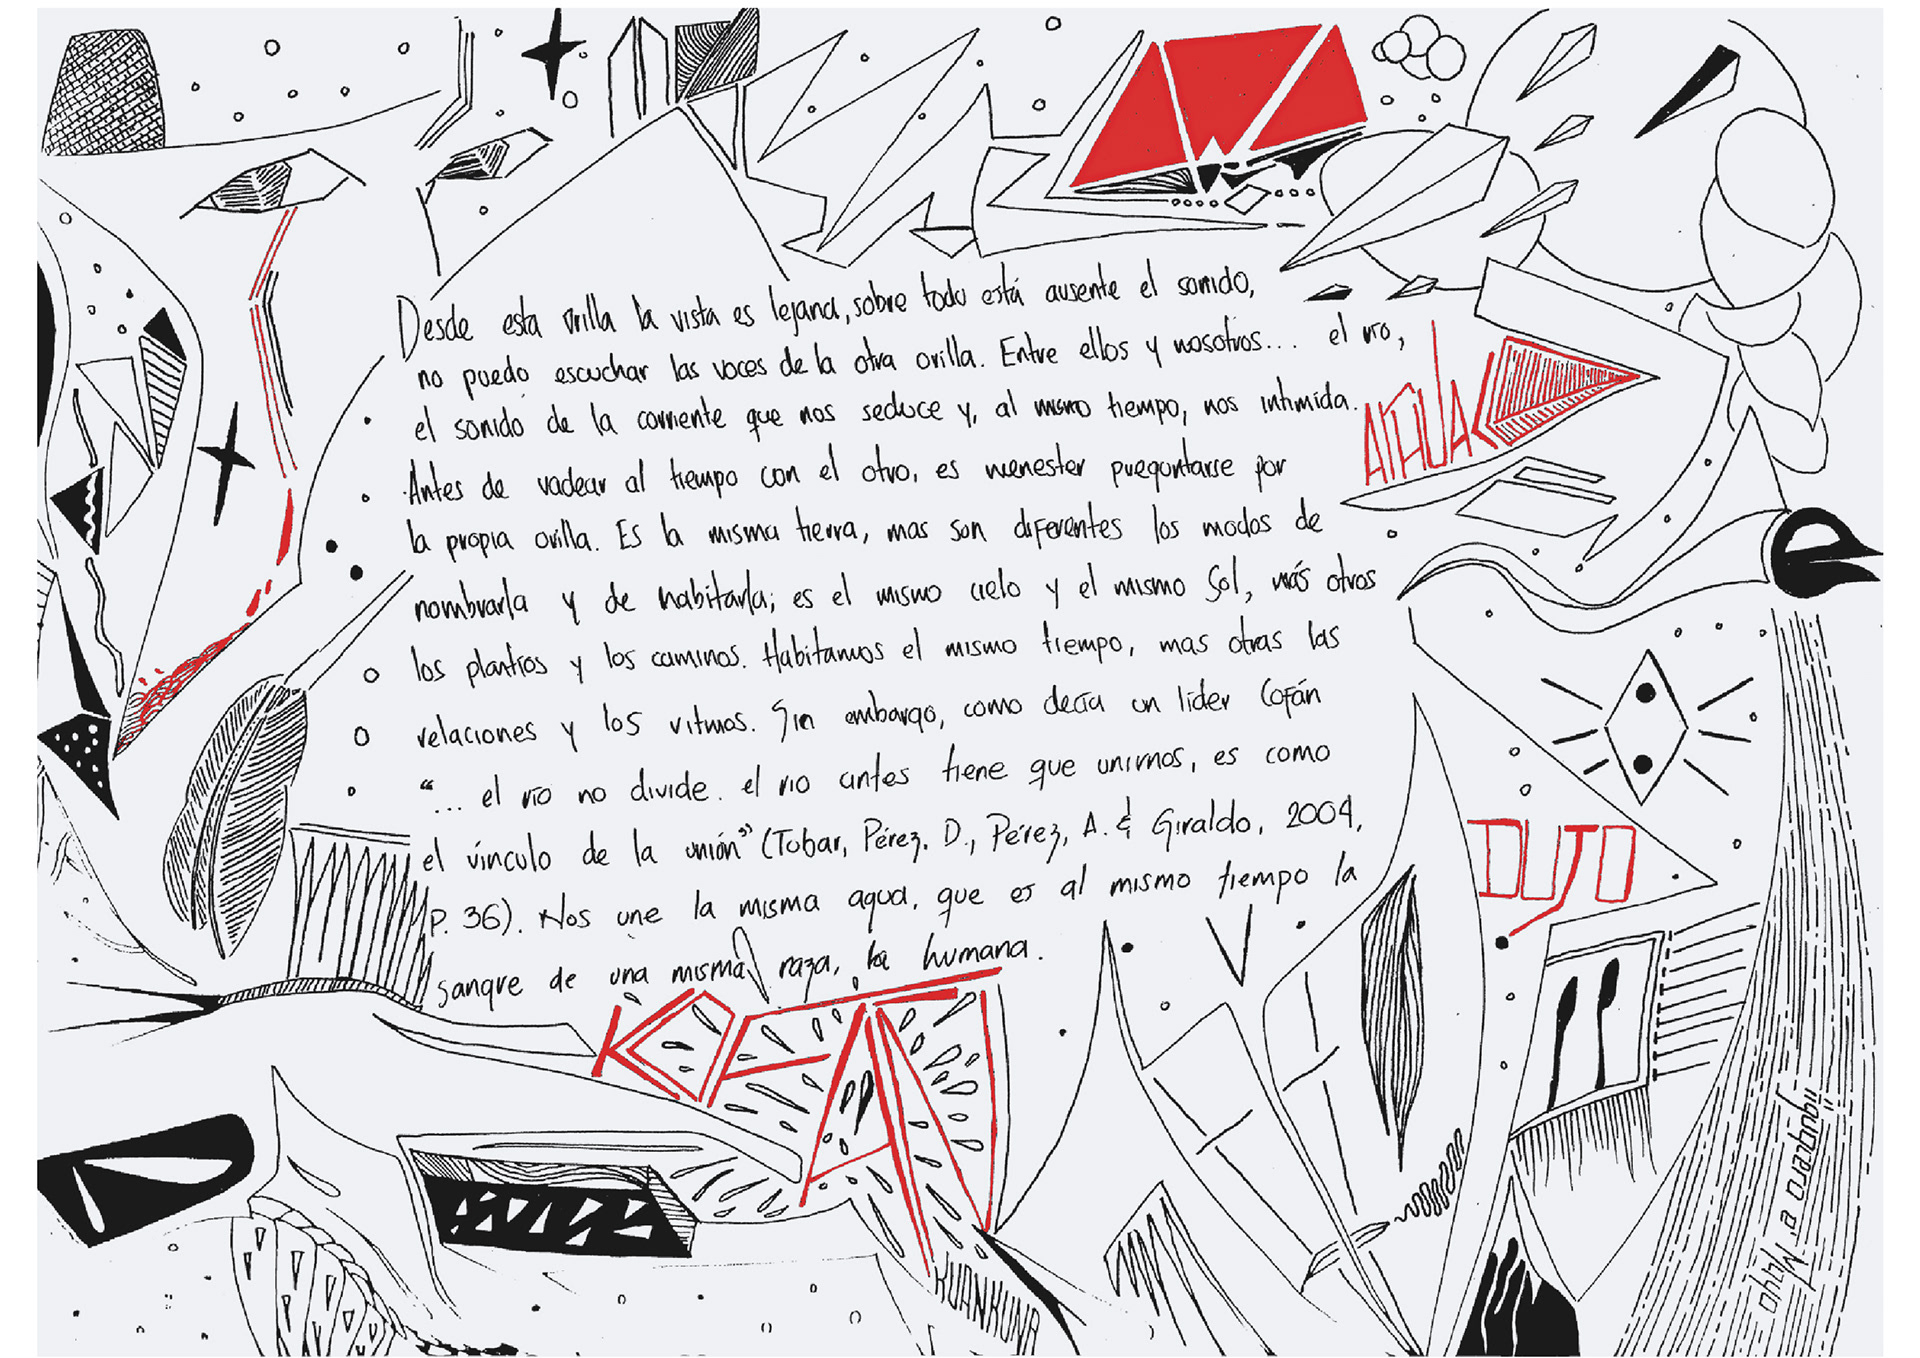 Desde esta orilla la vista es lejana, sobre todo está ausente el sonido,
no puedo escuchar las voces de la otra orilla. Entre ellos y nosotros... el río,
el sonido de la corriente que nos seduce y, al mismo tiempo, nos intimida.
Antes de vadear al tiempo con el otro, es menester preguntarse por
la propia orilla. Es la misma tierra, mas son diferentes los modos de
nombrarla y de habitarla; es el mismo cielo y el mismo Sol, más otros
los plantíos y los caminos. Habitamos el mismo tiempo, mas otras las
relaciones y los ritmos. Sin embargo, como decía un líder Cofán
“... el río no divide. el río antes tiene que unirnos, es como
el vínculo de la unión” (Tobar, Pérez, D., Pérez, A. & Giraldo, 2004,
P. 36). Nos une la misma agua, que es al mismo tiempo la
sangre de una misma raza, la humana.
DUJO
KOFAN
KUANKUNA